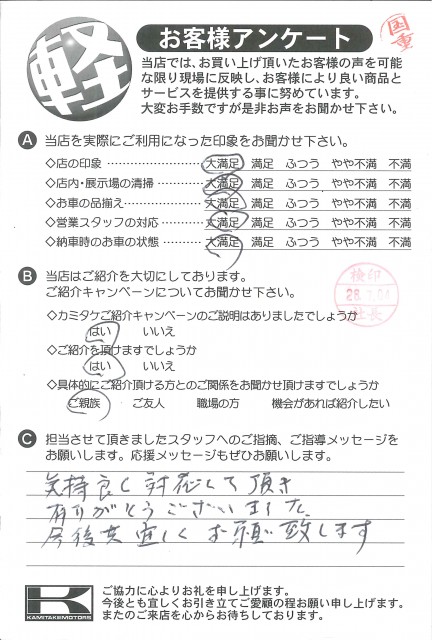 軽
お客様アンケート
国重
当店では、お買い上げ頂いたお客様の声を可能
な限り現場に反映し、お客様により良い商品と
サービスを提供する事に努めています。
大変お手数ですが是非お声をお聞かせ下さい。
A 当店を実際にご利用になった印象をお聞かせ下さい。
◇店の印象 ………………… 大満足 満足 ふつう やや不満 不満
◇店内・展示場の清掃 ……… 大満足 満足 ふつう やや不満 不満
◇お車の品揃え …………… 大満足 満足 ふつう やや不満 不満
◇営業スタッフの対応 ……… 大満足 満足 ふつう やや不満 不満
◇納車時のお車の状態 ……… 大満足 満足 ふつう やや不満 不満
B 当店はご紹介を大切にしてあります。
ご紹介キャンペーンについてお聞かせ下さい。
検印
社長
◇カミタケご紹介キャンペーンのご説明はありましたでしょうか
はい いいえ
◇ご紹介を頂けますでしょうか
はい いいえ
◇具体的にご紹介頂ける方とのご関係をお聞かせ頂けますでしょうか
ご親族 ご友人 職場の方 機会があれば紹介したい
C 担当させて頂きましたスタッフへのご指摘、ご指導メッセージを
お願いします。応援メッセージもぜひお願いします。
気持良く対応して頂き
有りがとうございました。
今後共宜しくお願い致します
K
KAMITAKEMOTORS
ご協力に心よりお礼を申し上げます。
今後とも宜しくお引き立てご愛顧の程お願い申し上げます。
またのご来店を心からお待ちしております。